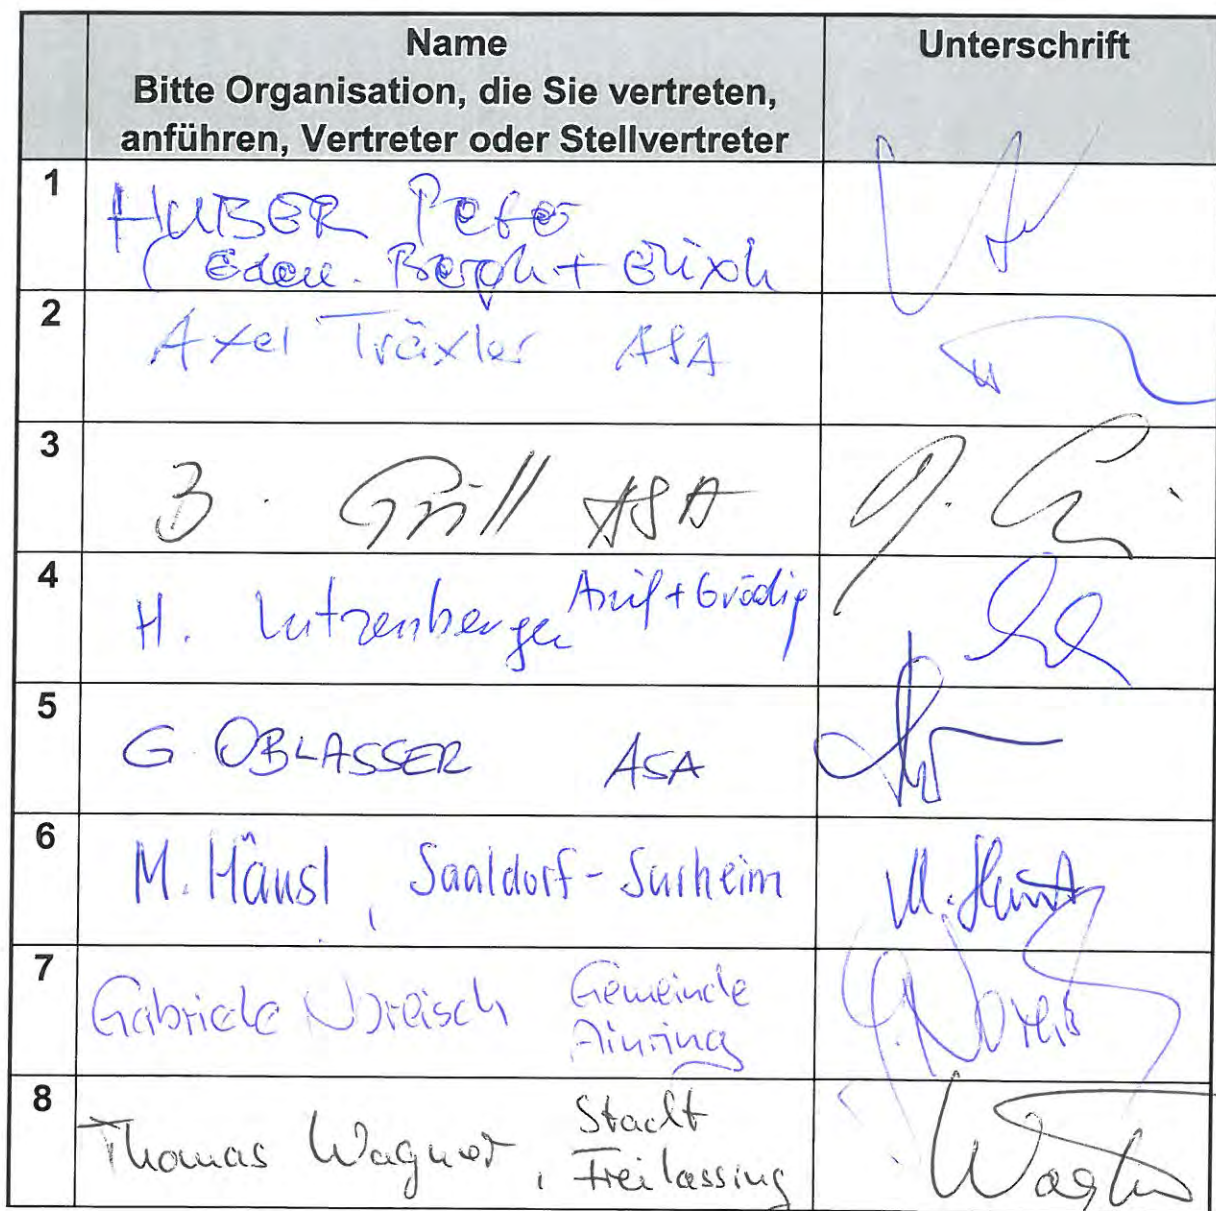 Name
Bitte Organisation, die Sie vertreten,
anführen, Vertreter oder Stellvertreter
Unterschrift
1
HUBER Peter
( Bergh +
2
Axel Träxler ASA
3
B. Grill ASA
4
H. Lutzenberger Anif + Grödig
5
G. OBLASSER ASA
6
M. Hänsl, Saaldorf-Surheim
M.
7
Gabriele Noreisch Gemeinde
Ainring
G. Noreis
8
Thomas Wagner, Stadt
Freilassing
Wagner